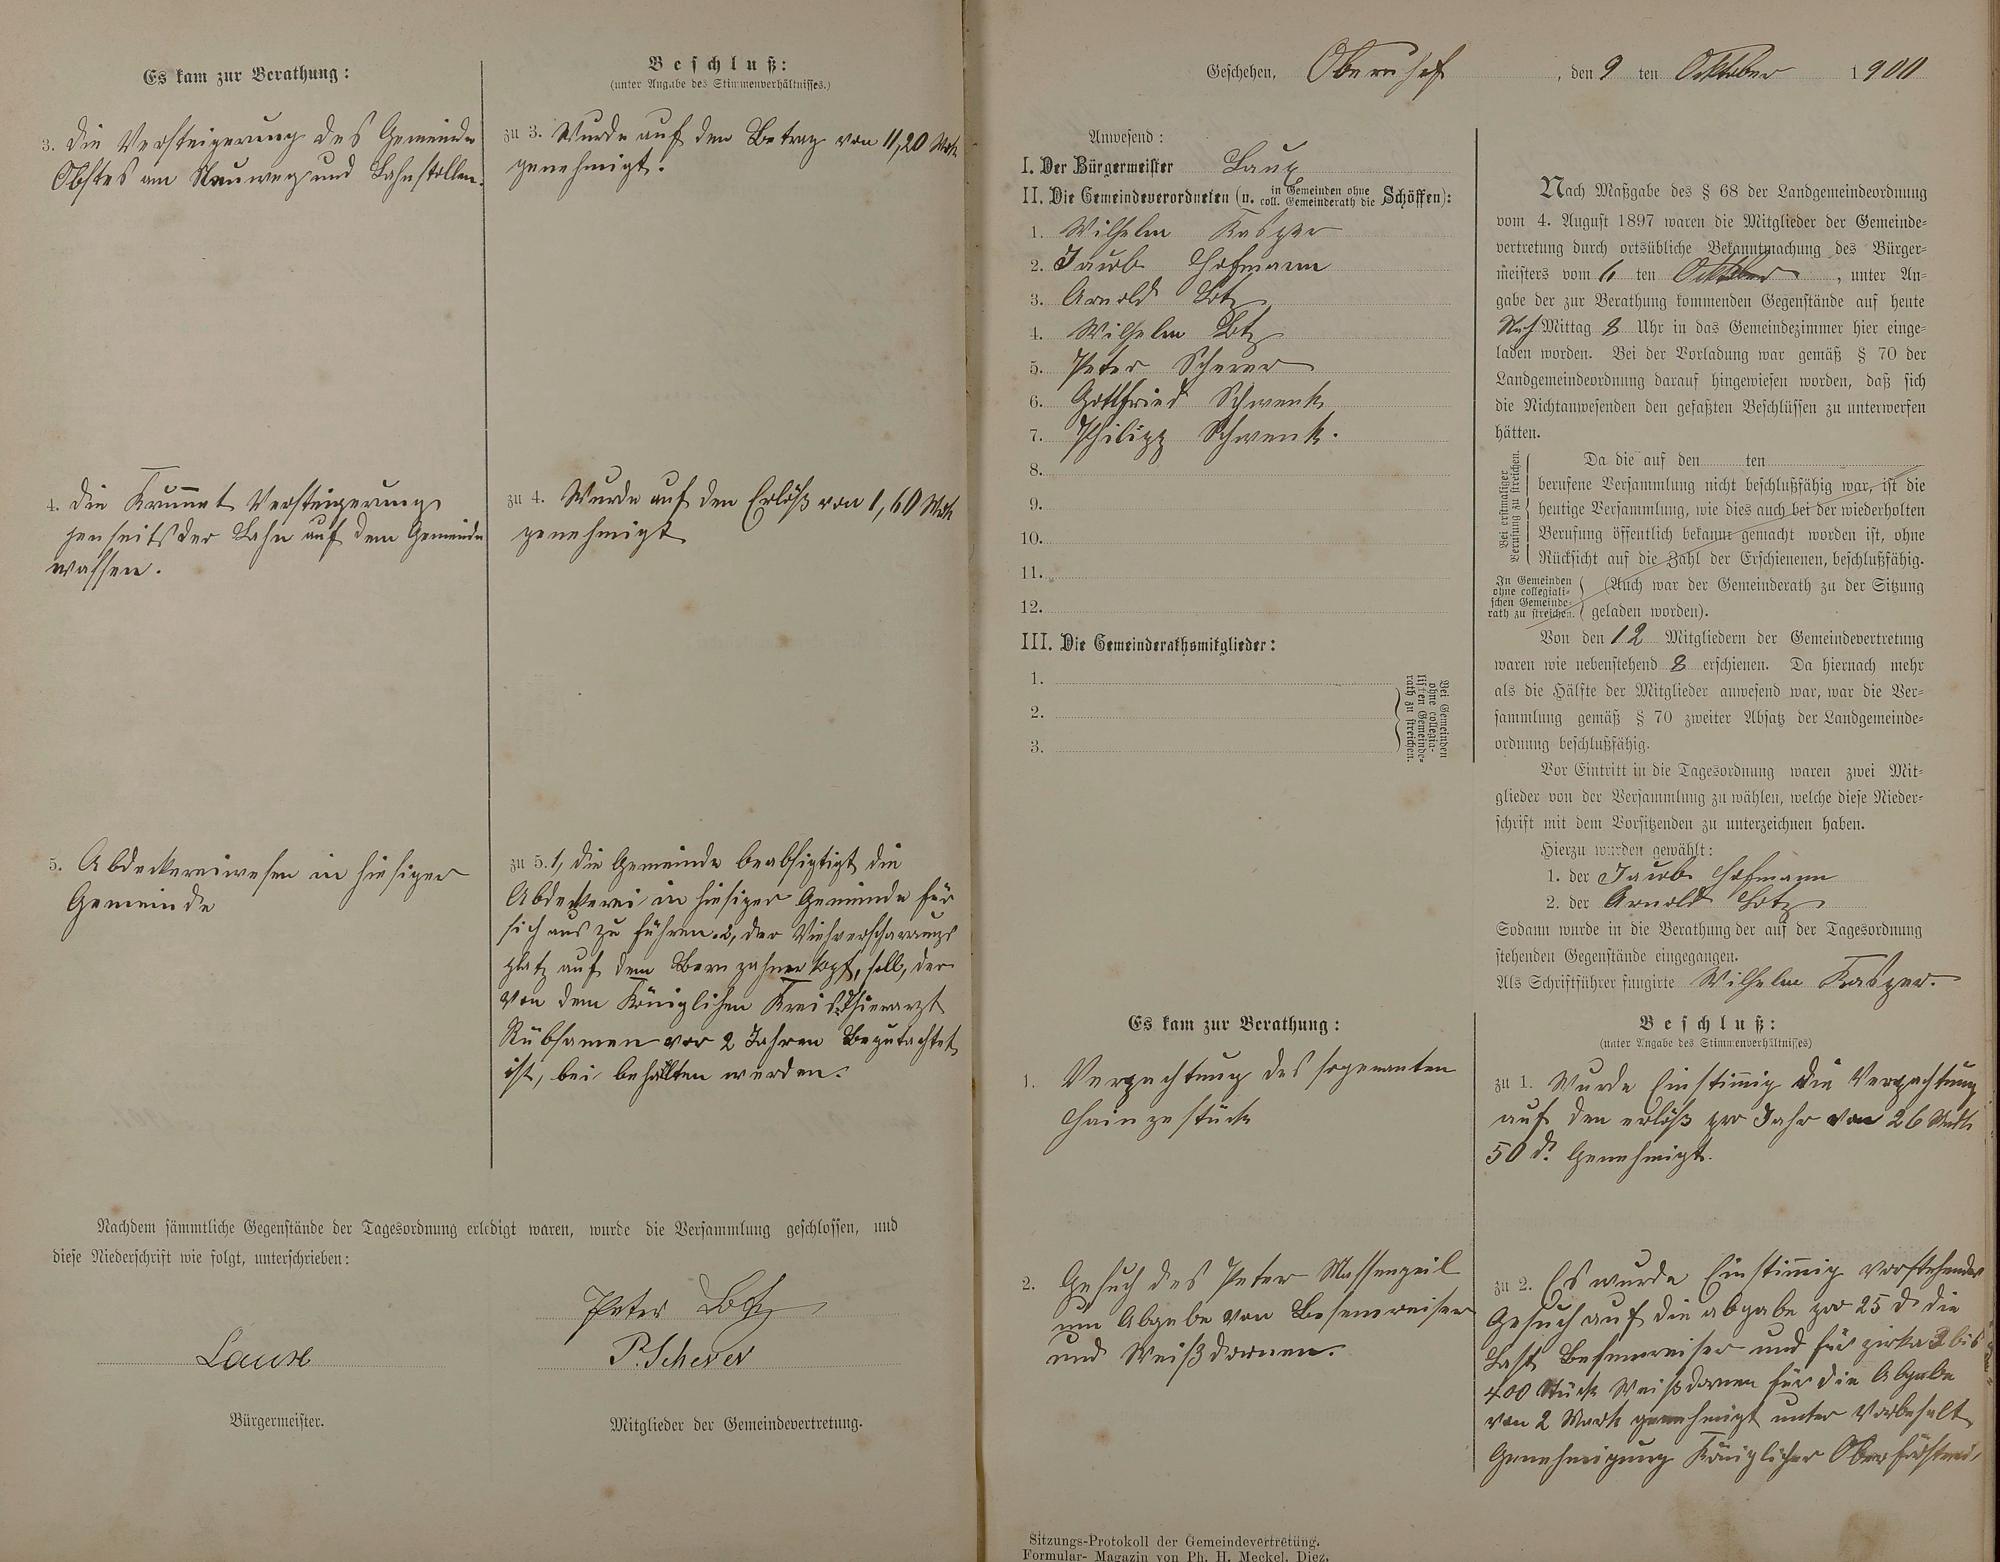 Es kam zur Berathung:
3. Die Versteigerung des Gemeinde
Obstes am Neuweg und Lahnstollen.
4. Die Krummet Versteigerung
jenseits der Lahn auf dem Gemeinde
wassen.
5. Abdeckereiwesen in hiesiger
Gemeinde
Beschluß:
(unter Angabe des Stimmenverhältnisses.)
zu 3. Wurde auf den Betrag von 11,20 Mrk
genehmigt.
zu 4. Wurde auf den Erlöß von 1,60 Mrk
genehmigt
zu 5. 1, die Gemeinde beabsigtigt die
Abdeckerei in hiesiger Gemeinde für
sich aus zu führen. 2, der Viehverscharrungs
platz auf dem kopf, soll, der
von dem Königlichen Kreisthierarzt
Rübsamen vor 2 Jahren Begutachtet
ist, bei behalten werden.
Nachdem sämmtliche Gegenstände der Tagesordnung erledigt waren, wurde die Versammlung geschlossen, und
diese Niederschrift wie folgt, unterschrieben:
Peter Lotz
Laux
P. Scherer
Bürgermeister.
Mitglieder der Gemeindevertretung.
Geschehen, Obernhof, den 9 ten Oktober 1900
Anwesend:
I. Der Bürgermeister Laux
II. Die Gemeindeverordneten (u. in Gemeinden ohne coll. Gemeinderath die Schöffen):
1. Wilhelm Kasper
2. Jacob Hofmann
3. Arnold Lotz
4. Wilhelm Lotz
5. Peter Scherer
6. Gottfried Schwenk
7. Philipp Schwenk.
8.
9.
10.
11.
12.
III. Die Gemeinderathsmitglieder:
1.
2.
3.
Bei Gemeinden
ohne collegia-
lischen Gemeinde-
rath zu streichen.
Nach Maßgabe des § 68 der Landgemeindeordnung
vom 4. August 1897 waren die Mitglieder der Gemeinde-
vertretung durch ortsübliche Bekanntmachung des Bürger-
meisters vom 6 ten Oktober, unter An-
gabe der zur Berathung kommenden Gegenstände auf heute
Nach Mittag 8 Uhr in das Gemeindezimmer hier einge-
laden worden. Bei der Vorladung war gemäß § 70 der
Landgemeindeordnung darauf hingewiesen worden, daß sich
die Nichtanwesenden den gefaßten Beschlüssen zu unterwerfen
hätten.
Bei erstmaliger
Berufung zu streichen.
Da die auf den ten
berufene Versammlung nicht beschlußfähig war, ist die
heutige Versammlung, wie dies auch bei der wiederholten
Berufung öffentlich bekannt gemacht worden ist, ohne
Rücksicht auf die Zahl der Erschienenen, beschlußfähig.
In Gemeinden
ohne collegiali-
schen Gemeinde-
rath zu streichen.
(Auch war der Gemeinderath zu der Sitzung
geladen worden).
Von den 12 Mitgliedern der Gemeindevertretung
waren wie nebenstehend 8 erschienen. Da hiernach mehr
als die Hälfte der Mitglieder anwesend war, war die Ver-
sammlung gemäß § 70 zweiter Absatz der Landgemeinde-
ordnung beschlußfähig.
Vor Eintritt in die Tagesordnung waren zwei Mit-
glieder von der Versammlung zu wählen, welche diese Nieder-
schrift mit dem Vorsitzenden zu unterzeichnen haben.
Hierzu wurden gewählt:
1. der Jacob Hofmann
2. der Arnold Lotz
Sodann wurde in die Berathung der auf der Tagesordnung
stehenden Gegenstände eingegangen.
Als Schriftführer fungirte Wilhelm Kasper.
Es kam zur Berathung:
1. Verpachtung des sogenanten
Hainzestück
2. Gesuch des Peter Massengeil
um Abgabe von Besenreiser
und Weißdornen.
Beschluß:
(unter Angabe des Stimmenverhältnisses)
zu 1. Wurde Einstimmig die Verpachtung
auf den erlöß pro Jahr von 26 Mark
50 d. Genehmigt.
zu 2. Es wurde Einstimmig vorstehendes
Gesuch auf die abgabe pro 25 d. die
Last Besenreiser und für zirka 3 bis
400 Stück Weißdornen für die Abgabe
von 2 Mark genehmigt unter Vorbehalt
Genehmigung Königlicher Oberförsterei,
Sitzungs-Protokoll der Gemeindevertretung.
Formular-Magazin von Ph. H. Meckel, Diez.